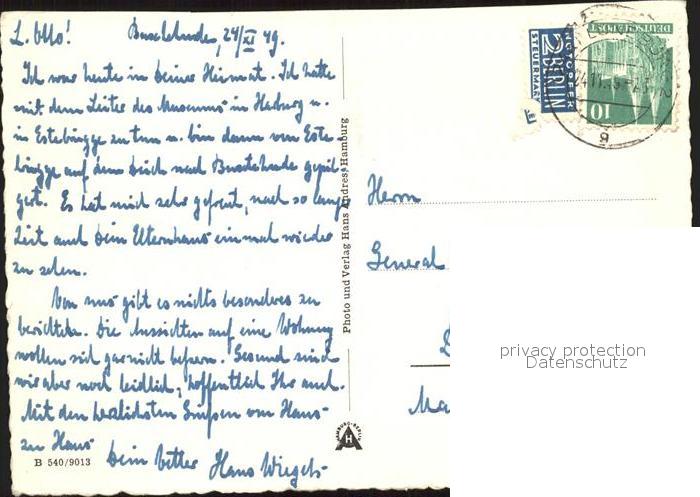 L. Otto! Buxtehude, 24/XI 49.
Ich war heute in Deiner Heimat. Ich hatte
mit dem Leiter des Museums in Harburg u.
in Estebrügge zu tun u. bin dann von Este-
brügge auf dem Deich nach Buxtehude gepil-
gert. Es hat mich sehr gefreut, nach so langer
Zeit auch Dein Elternhaus einmal wieder
zu sehen.
Von uns gibt es nichts besonderes zu
berichten. Die Aussichten auf eine Wohnung
wollen sich garnicht bessern. Gesund sind
wir aber noch leidlich, hoffentlich Ihr auch.
Mit den herzlichsten Grüßen von Haus
zu Haus
Dein Vetter Hans
B 540/9013
Photo und Verlag Hans Andres, Hamburg
HAMBURG-BERLIN
NOTOPFER
2 BERLIN
STEUERMARKE
DEUTSCHE POST
10
Herrn
General
privacy protection
Datenschutz